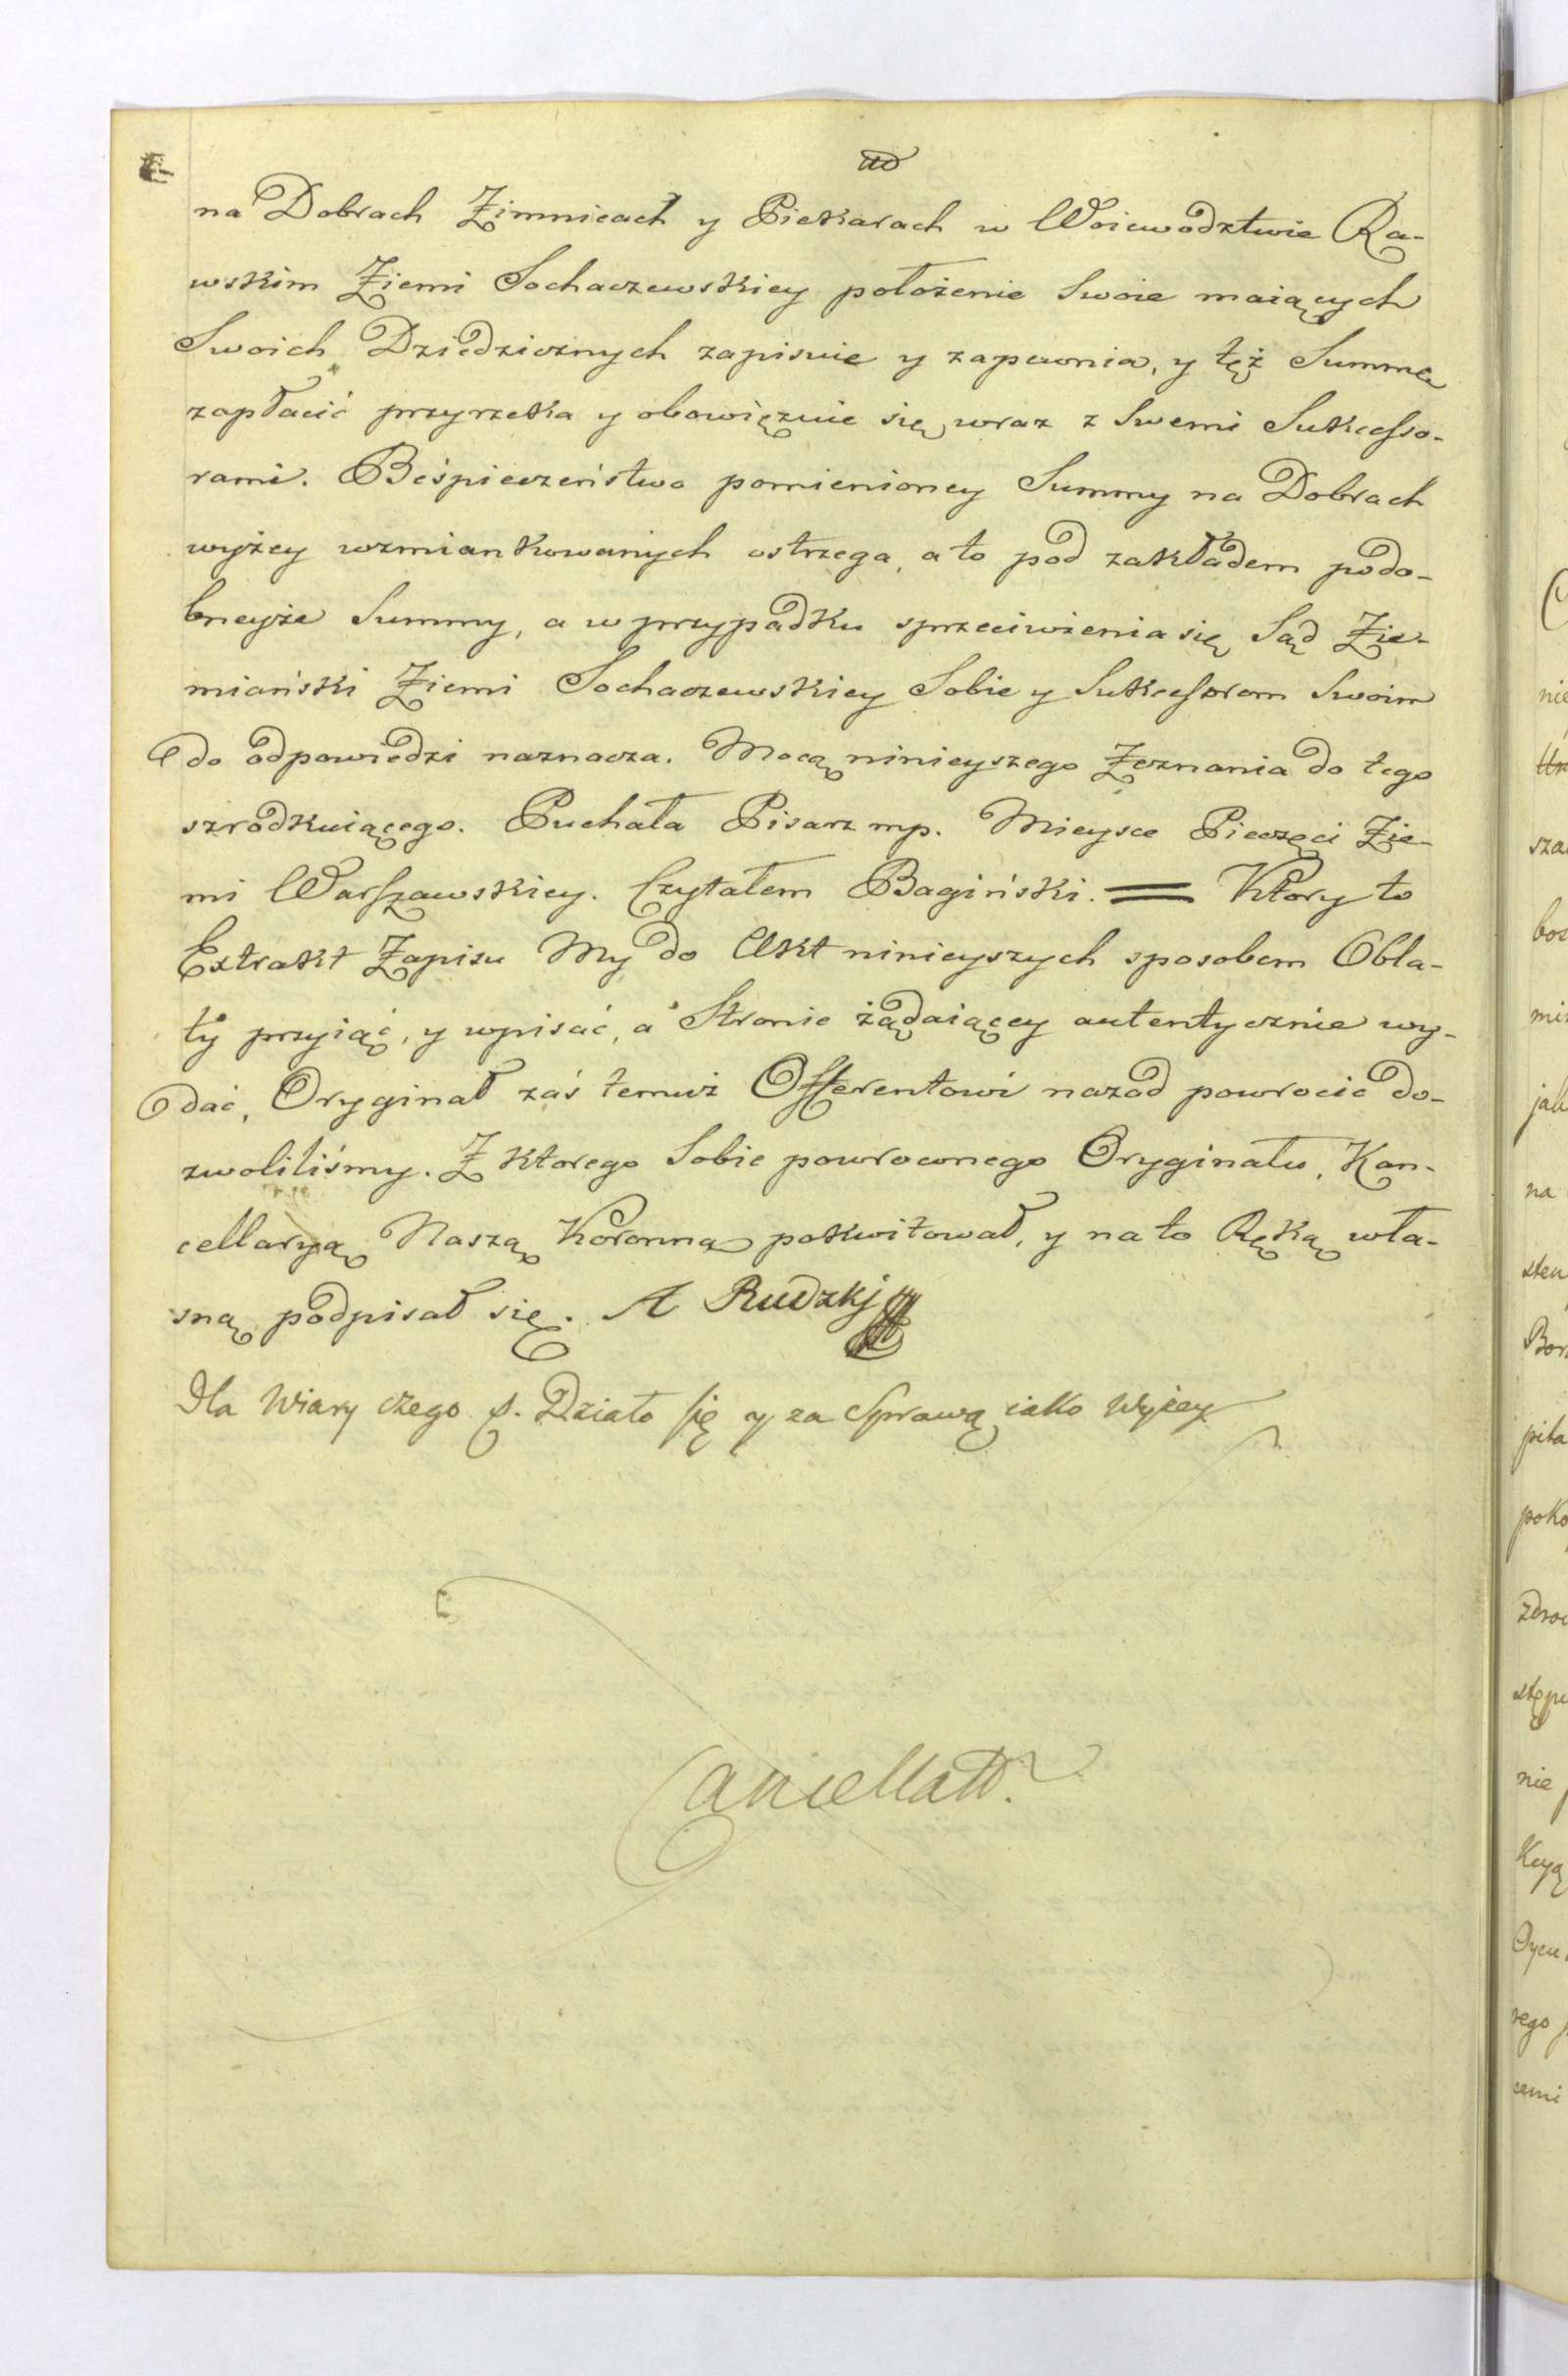 na Dobrach Zimnicach y Piekarach w Woiewodztwie Ra-
wskim Ziemi Sochaczewskiey położenie Swoie maiących
Swoich Dziedzicznych zapisuie y zapewnia, y tęż Summę
zapłacić przyrzeka y obowięzuie się wraz z Swemi Sukcesso-
rami. Beśpieczeństwo pomienioney Summy na Dobrach
wyżey wzmiankowanych ostrzega, a to pod zakładem podo-
bneyże Summy, a w przypadku sprzeciwienia się Sąd Zie-
miański Ziemi Sochaczewskiey Sobie y Sukcessorom Swoim
do odpowiedzi naznacza. Mocą ninieyszego Zeznania do tego
szrodkuiącego. Puchała Pisarz mp. Mieysce Pieczęci Zie-
mi Warszawskiey. Czytałem Bagiński. = Ktory to
Extrakt Zapisu My do Akt ninieyszych sposobem Obla-
ty przyiąć, y wpisać, a Stronie żądaiącey autentycznie wy-
dać, Oryginał zaś temuż Offerentowi nazad powrocić do-
zwoliliśmy. Z ktorego Sobie powroconego Oryginału, Kan-
cellaryą Naszą Koronną pokwitował, y na to Ręką wła-
sną podpisał się. A Rudzkj
Dla Wiary czego &. Działo się y za Sprawą iako Wyżey